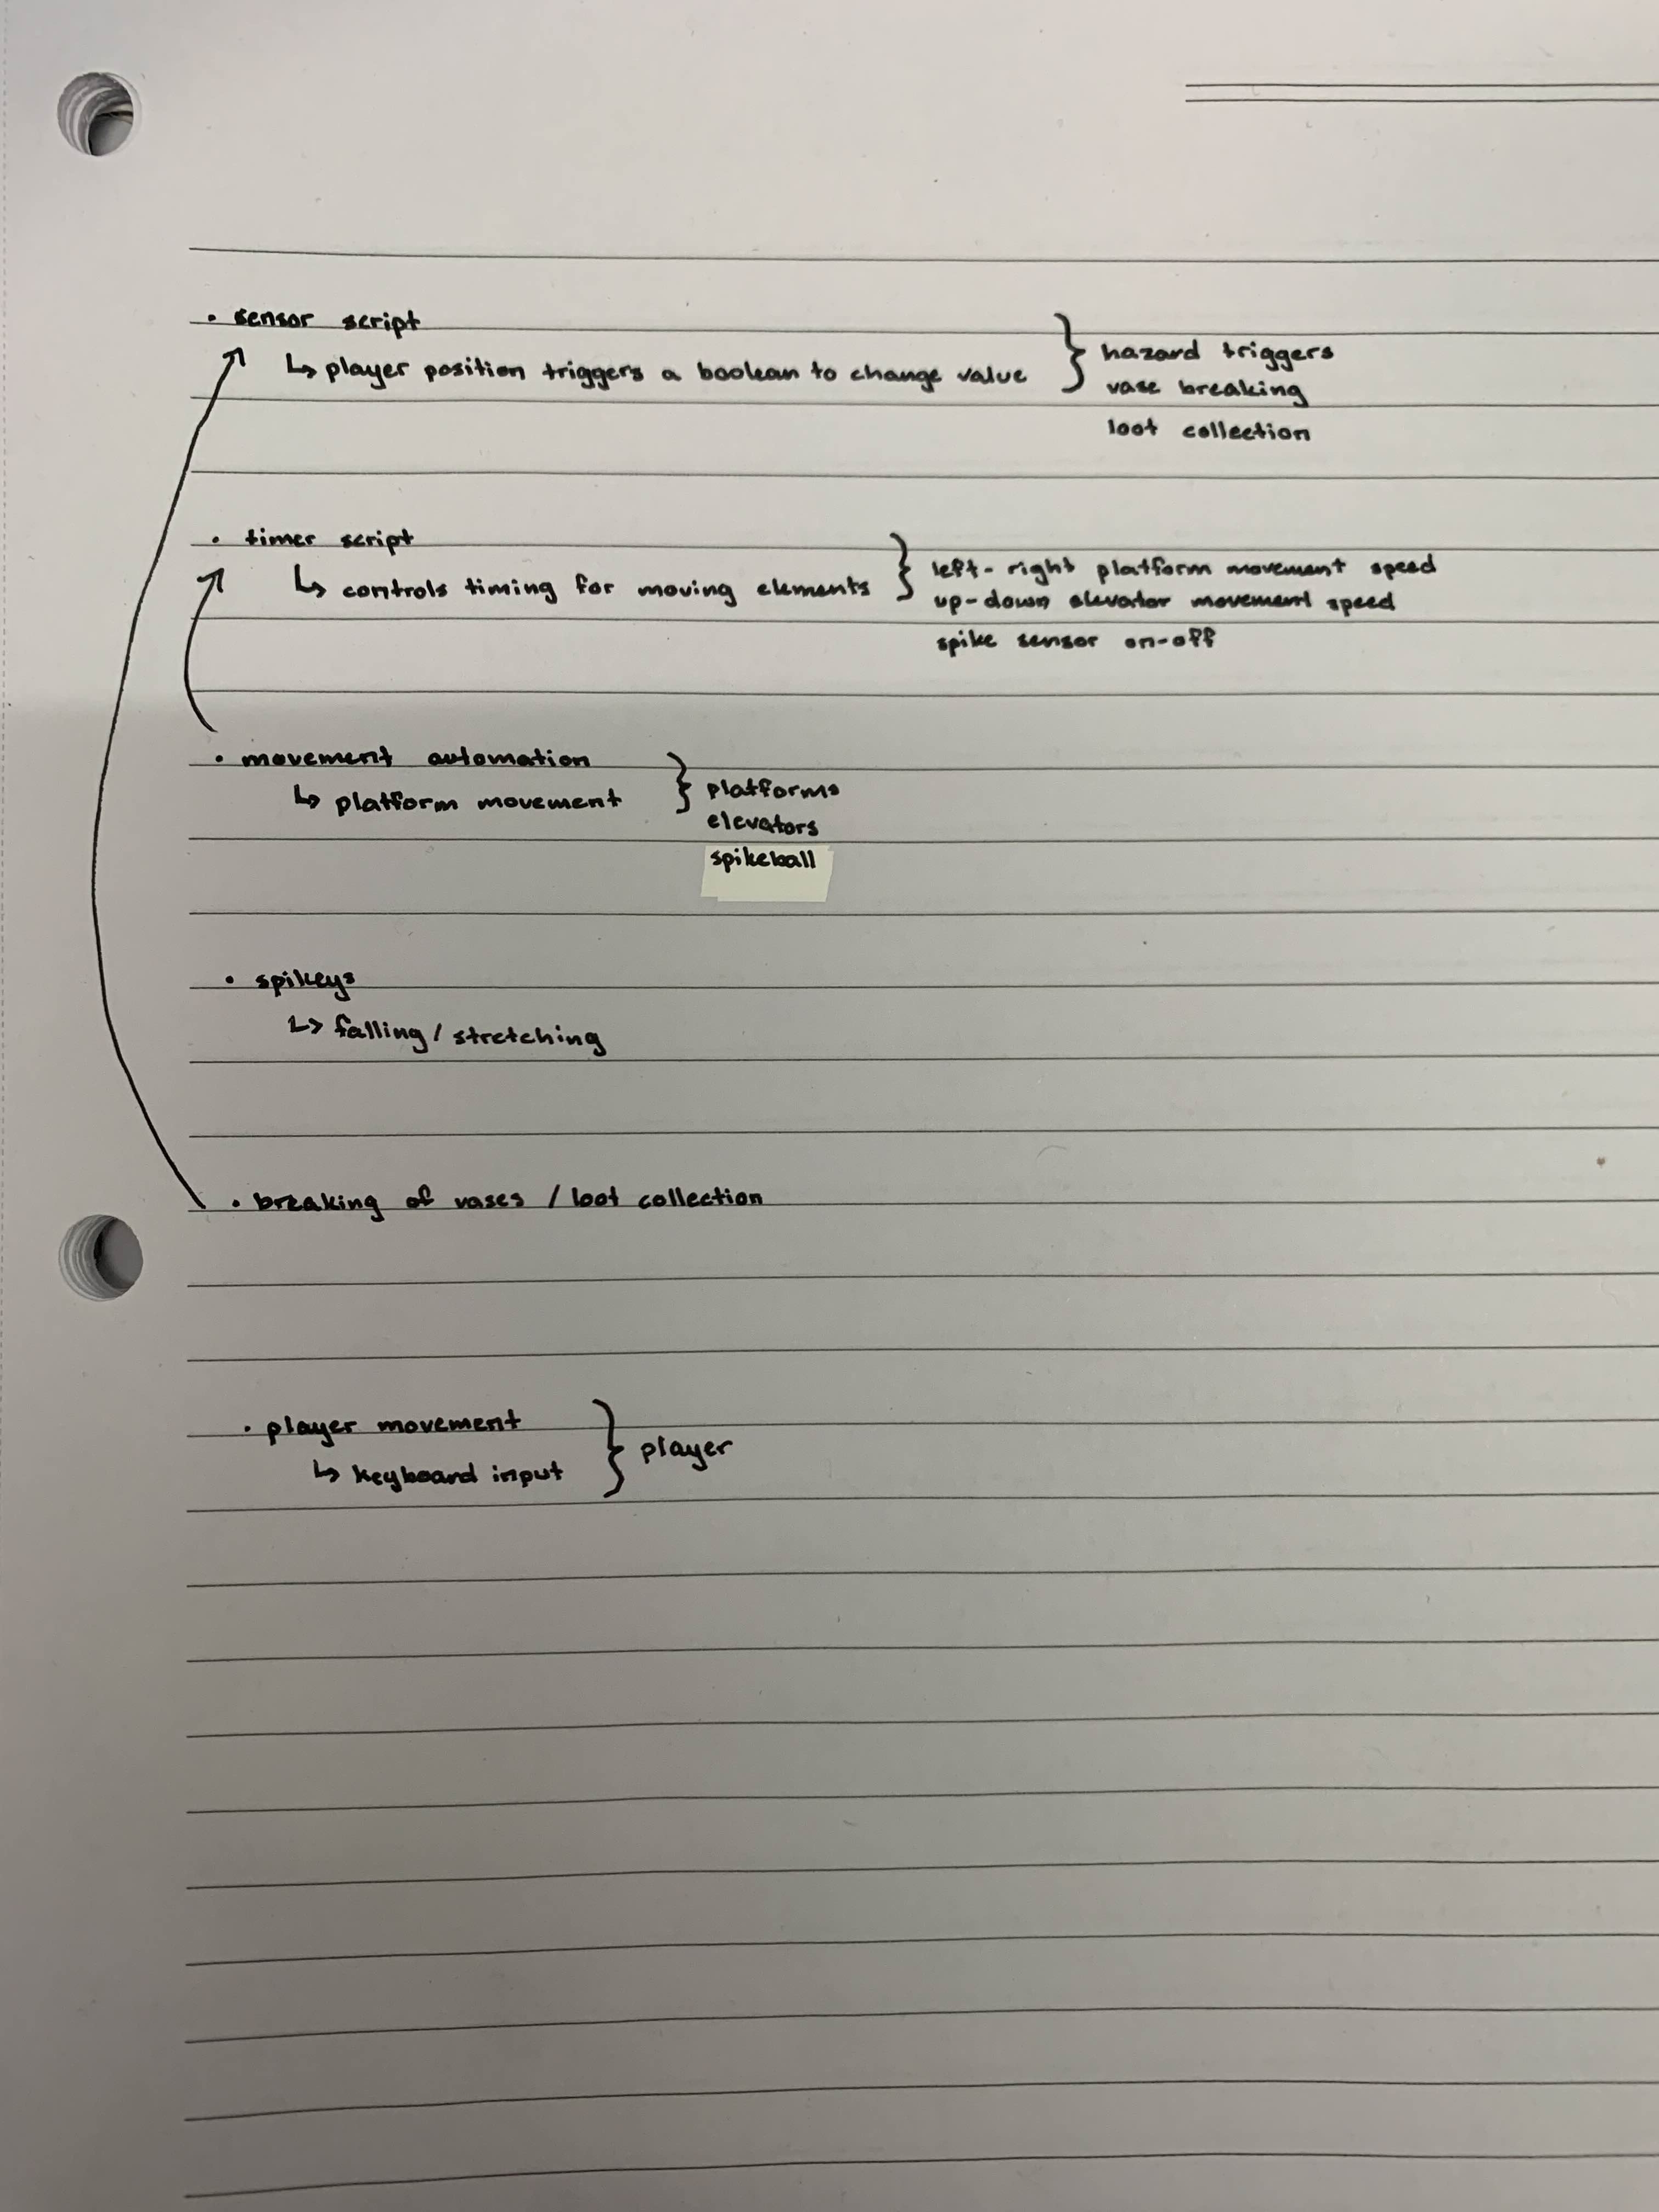 • sensor script
↳ player position triggers a boolean to change value } hazard triggers
vase breaking
loot collection
• timer script
↳ controls timing for moving elements } left-right platform movement speed
up-down elevator movement speed
spike sensor on-off
• movement automation
↳ platform movement } platforms
elevators
spikeball
• spikeys
↳ falling / stretching
• breaking of vases / loot collection
• player movement
↳ keyboard input } player